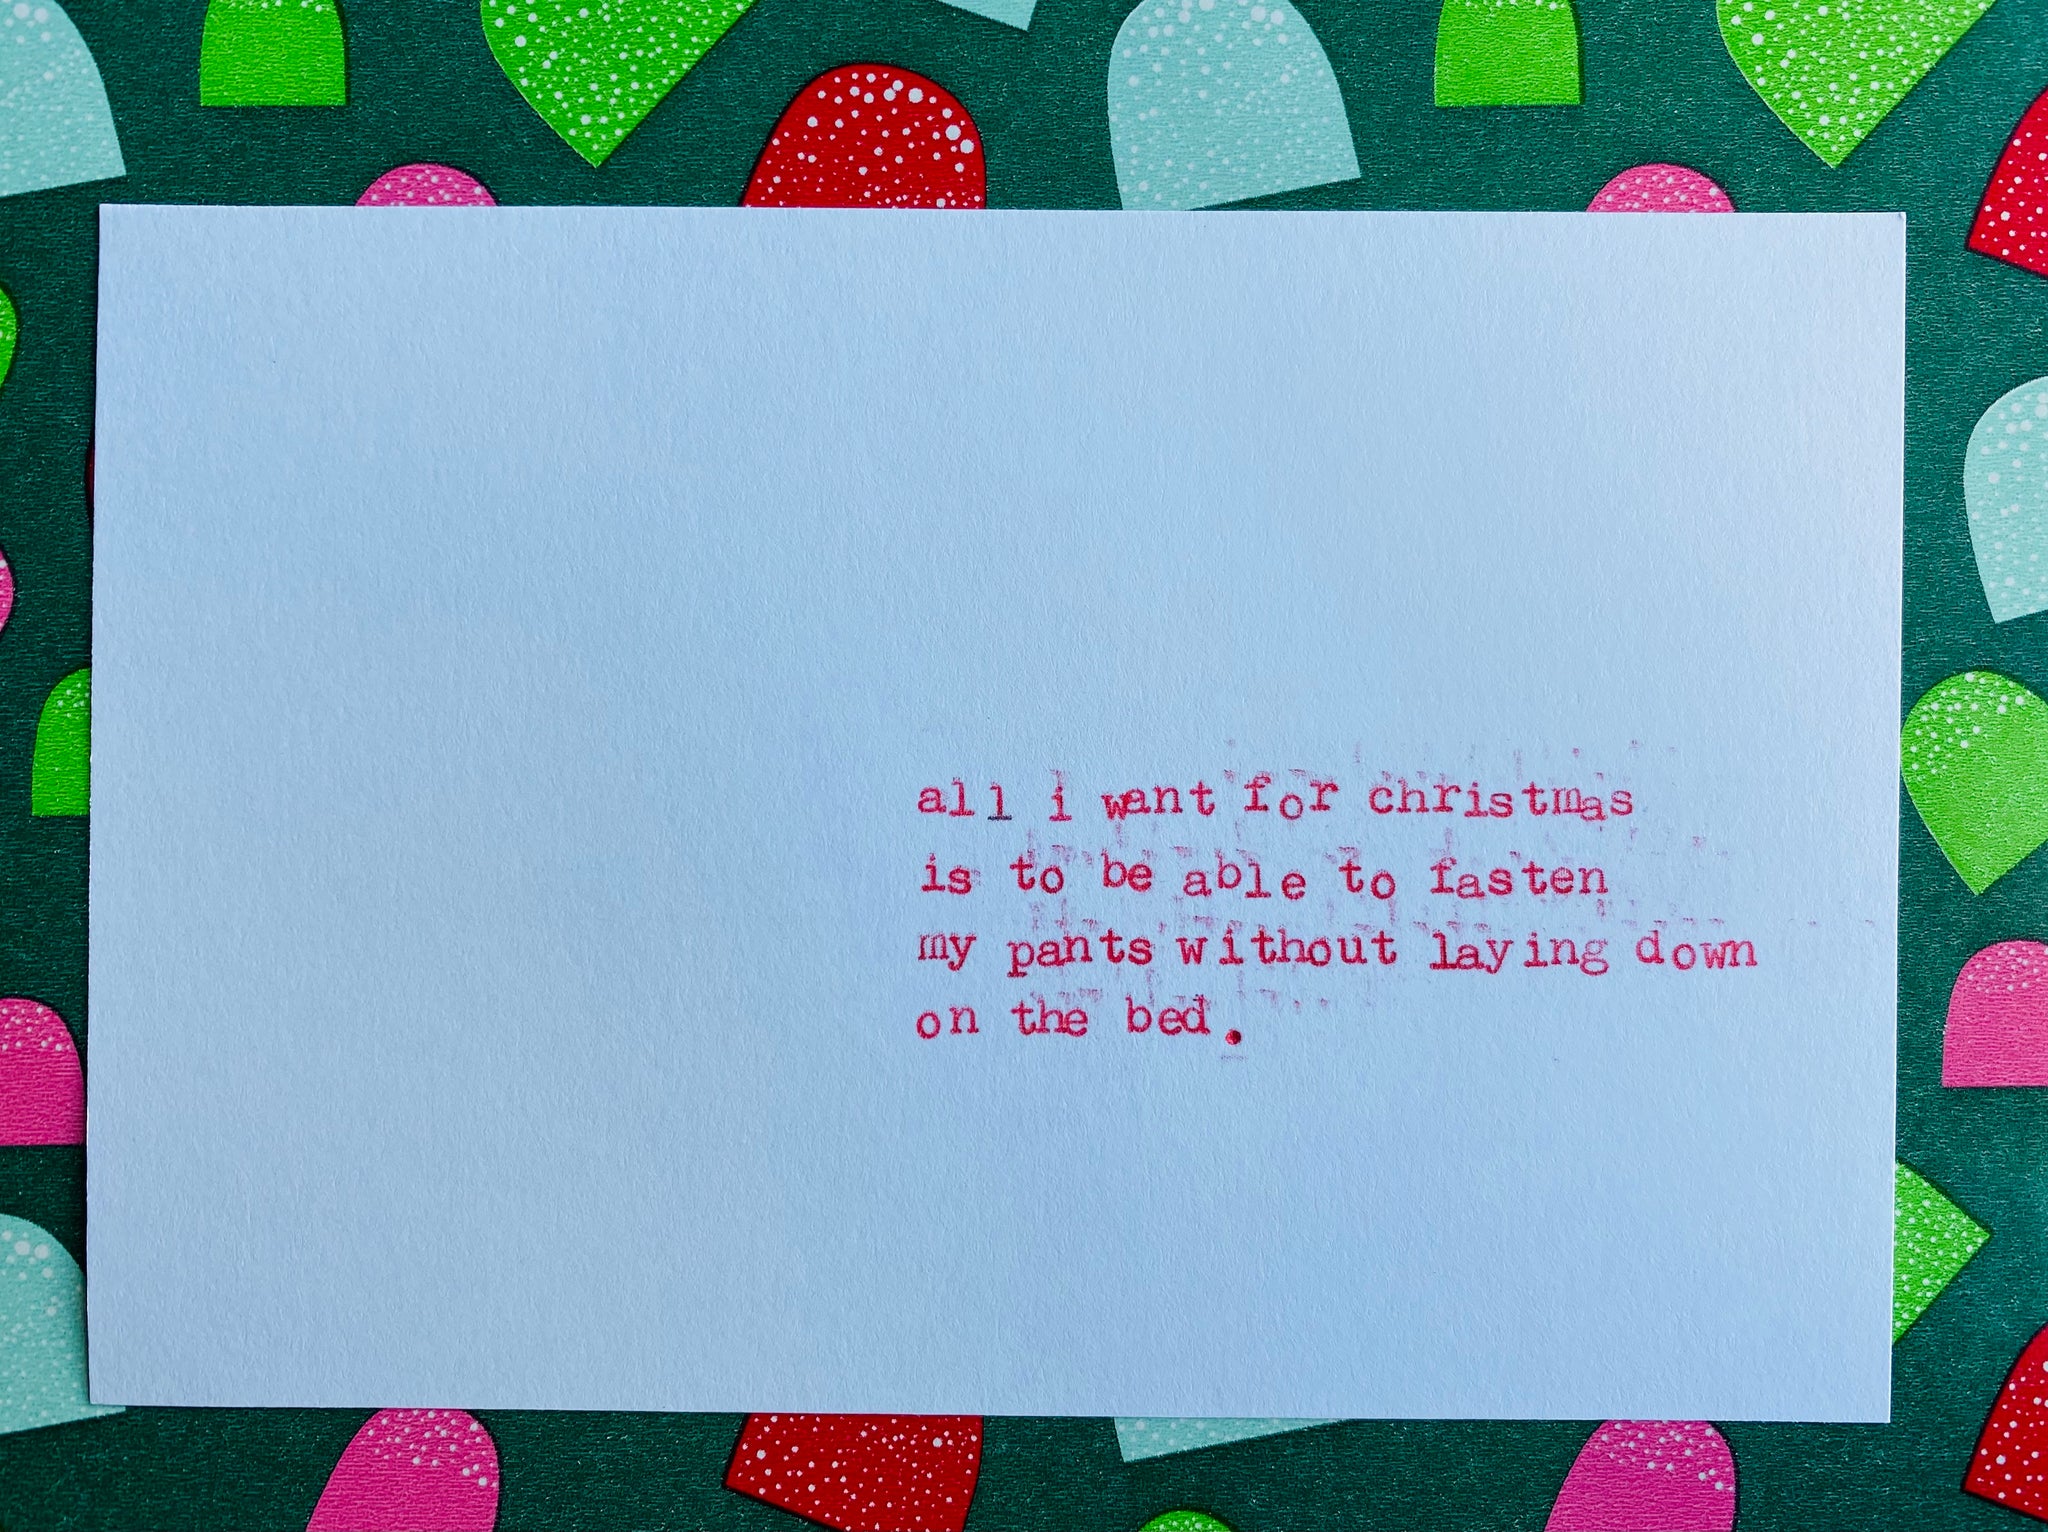 all i want for christmas
is to be able to fasten
my pants without laying down
on the bed.